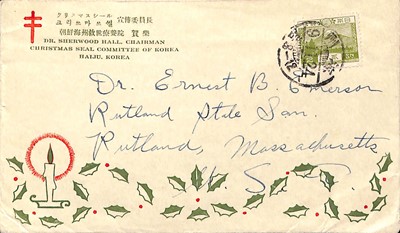 クリスマスシール
크리쓰마쓰씰
宣傳委員長
朝鮮海州救世療養院 賀樂
DR. SHERWOOD HALL, CHAIRMAN
CHRISTMAS SEAL COMMITTEE OF KOREA
HAIJU, KOREA
Dr. Ernest B. Emerson
Rutland State San.
Rutland, Massachusetts
U. S.